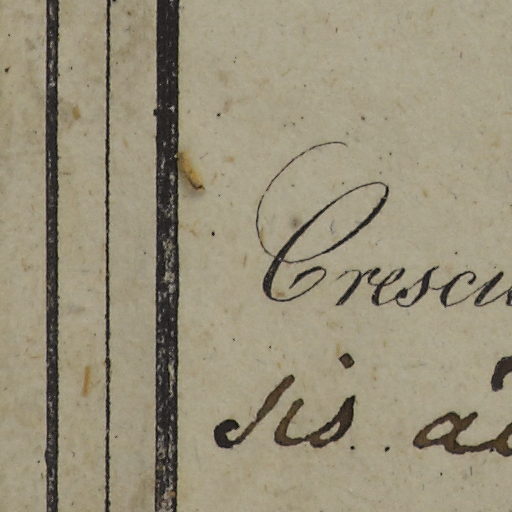 Crescu
sis ad